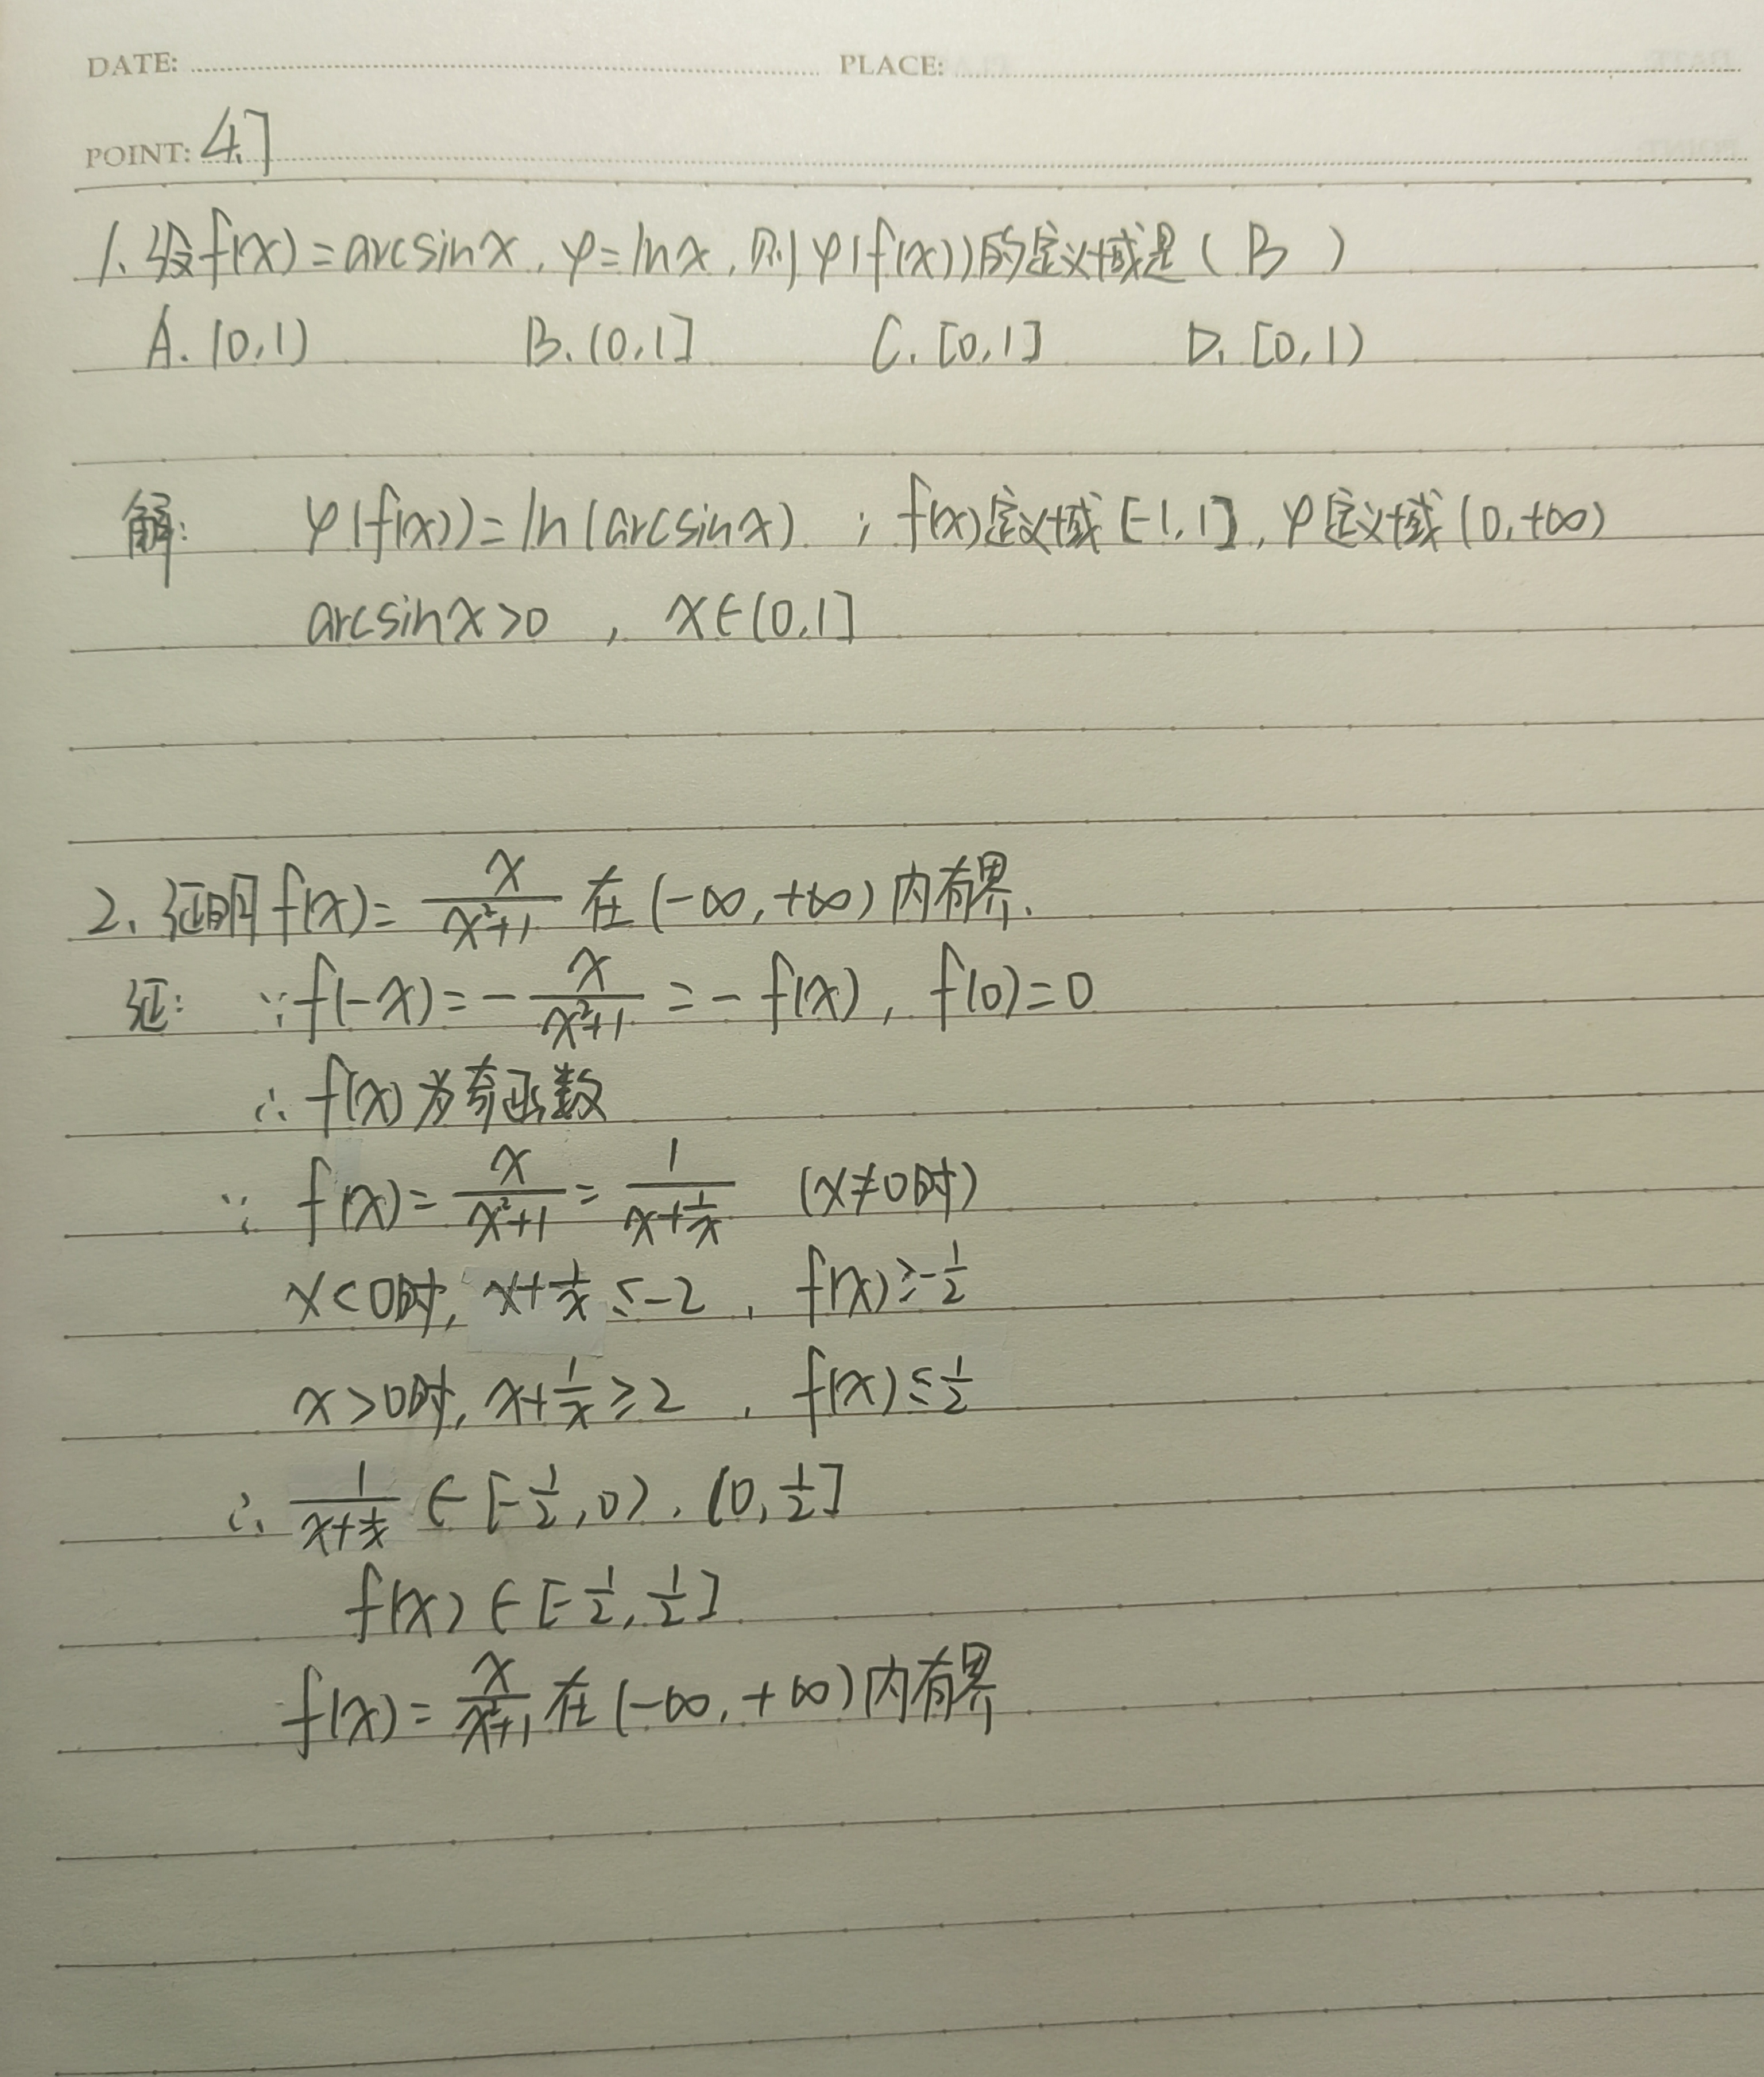 DATE: PLACE:
POINT: 4.7
1. 设f(x)=arcsinx, φ=lnx, 则φ(f(x))的定义域是( B )
A. (0,1) B. (0,1] C. [0,1] D. [0,1)
解: φ(f(x))=ln(arcsinx) ; f(x)定义域[-1,1], φ定义域(0,+∞)
arcsinx>0 , x∈(0,1]
2. 证明f(x)=x/(x²+1)在(-∞,+∞)内有界.
证: ∵f(-x)=-x/(x²+1)=-f(x), f(0)=0
∴f(x)为奇函数
∵ f(x)=x/(x²+1)=1/(x+1/x) (x≠0时)
x<0时, x+1/x≤-2 , f(x)≥-1/2
x>0时, x+1/x≥2 , f(x)≤1/2
∴ 1/(x+1/x)∈[-1/2,0), (0,1/2]
f(x)∈[-1/2,1/2]
f(x)=x/(x²+1)在(-∞,+∞)内有界